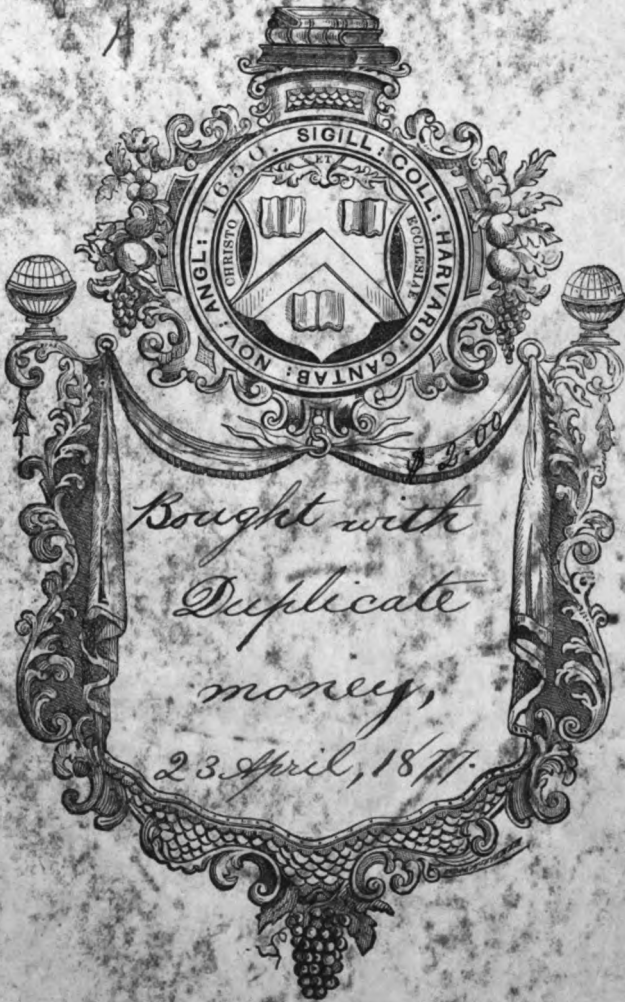 SIGILL: COLL: HARVARD: CANTAB: NOV: ANGL: 1650.
CHRISTO
ET
ECCLESIAE
$2.00
Bought with
Duplicate
money,
23 April, 1877.